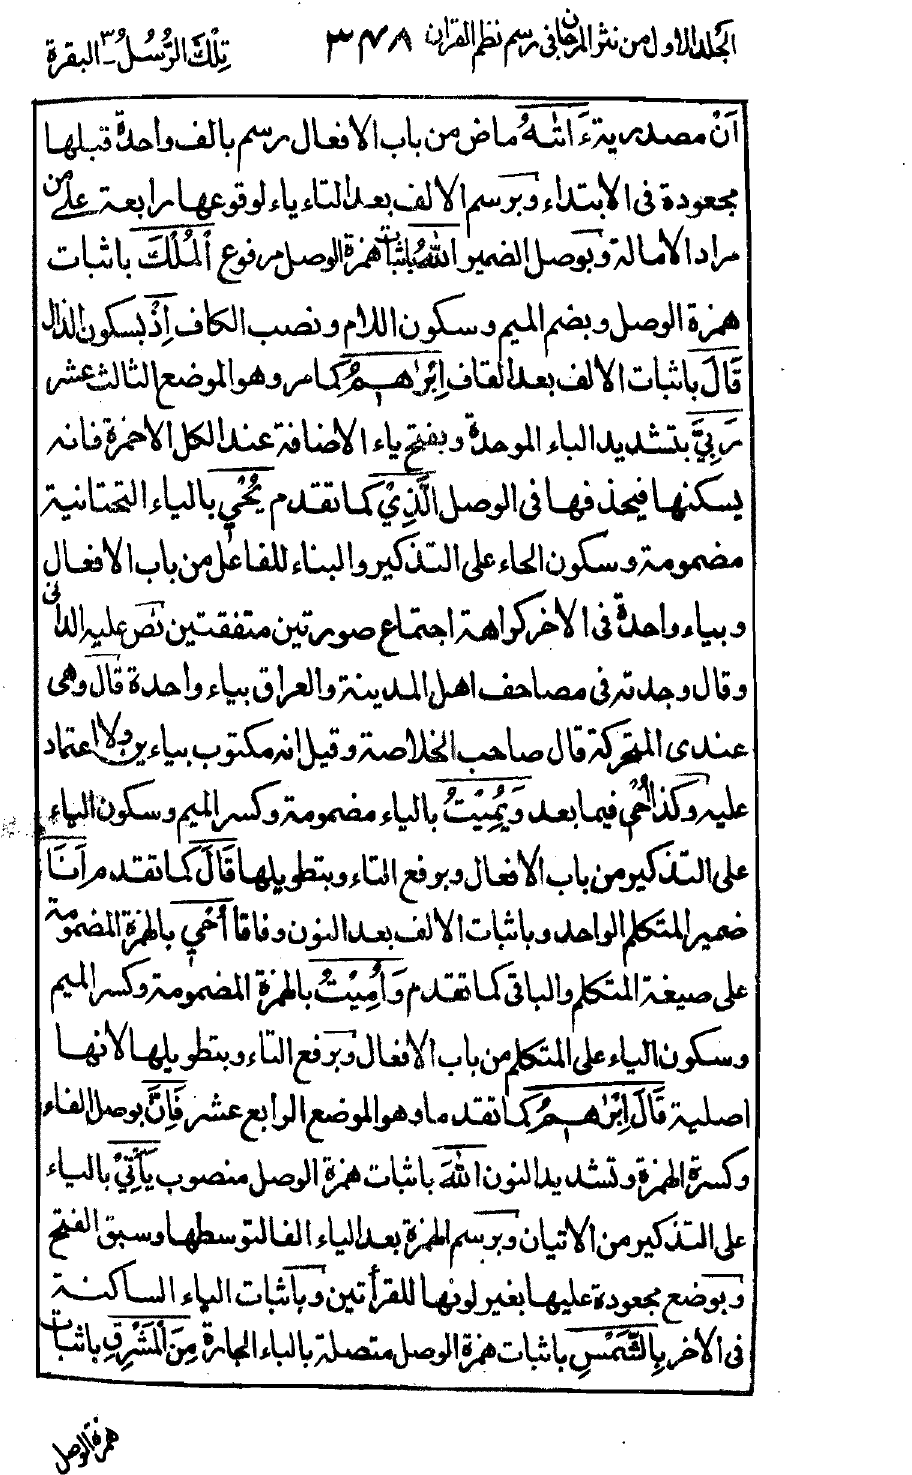 الجلد الاول من نثر المرجان فى رسم نظم القرآن ٣٤٨ تِلْكَ الرُّسُلُ ٣ ـ البقرة
اَنْ مصدرية ءَاتٰىهُ ماض من باب الافعال رسم بالف واحدة قبلها
مجعودة فى الابتداء وبرسم الالف بعد التاء ياء لوقوعها رابعة على من
مراد الامالة وبوصل الضمير اللّٰهُ باثبات همزة الوصل مرفوع الْمُلْكَ باثبات
همزة الوصل وبضم الميم وسكون اللام ونصب الكاف اِذْ بسكون الذال
قَالَ باثبات الالف بعد القاف اِبْرٰهٖمُ كما مر وهو الموضع الثالث عشر
رَبِّيَ بتشديد الباء الموحدة وبفتح ياء الاضافة عند الكل الاحمزة فانه
يسكنها فيحذفها فى الوصل الَّذِيْ كما تقدم يُحْيٖ بالياء التحتانية
مضمومة وسكون الحاء على التذكير والبناء للفاعل من باب الافعال
وبياء واحدة فى الاخر كراهة اجتماع صورتين متفقتين نص عليه الدانى
وقال وجدته فى مصاحف اهل المدينة والعراق بياء واحدة قال وهى
عندى المتحركة قال صاحب الخلاصة وقيل انه مكتوب بياءين ولا اعتماد
عليه وكذا اُحْي فيما بعد وَيُمِيْتُ بالياء مضمومة وكسر الميم وسكون الياء
على التذكير من باب الافعال وبرفع التاء وبتطويلها قَالَ كما تقدم اَنَا
ضمير المتكلم الواحد وباثبات الالف بعد النون وفاقا اُحْيٖ بالهمزة المضمومة
على صيغة المتكلم والباقى كما تقدم وَاُمِيْتُ بالهمزة المضمومة وكسر الميم
وسكون الياء على المتكلم من باب الافعال وبرفع التاء وبتطويلها لانها
اصلية قَالَ اِبْرٰهٖمُ كما تقدما وهو الموضع الرابع عشر فَاِنَّ بوصل الفاء
وكسرة الهمزة وتشديد النون اللّٰهَ باثبات همزة الوصل منصوب يَأْتِيْ بالياء
على التذكير من الاتيان وبرسم الهمزة بعد الياء الفا لتوسطها وسبق الفتح
وبوضع مجعودة عليها بغير لونها للقرأتين وباثبات الياء الساكنة
فى الاخر بِالشَّمْسِ باثبات همزة الوصل متصلة بالباء الجارة مِنَ الْمَشْرِقِ باثبات
همزة الوصل